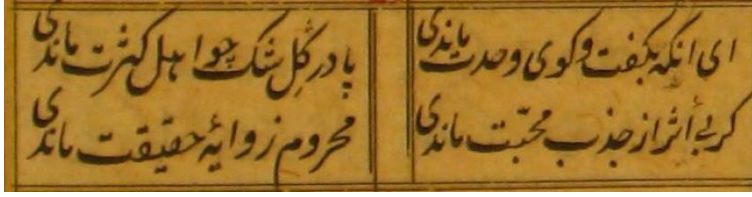 ای انکه بکفت وکوی وحدت ماندی
پا در گل شک چو اهل کثرت ماندی
کر بی أثر از جذب محبّت ماندی
محروم ز وایهٔ حقیقت ماندی